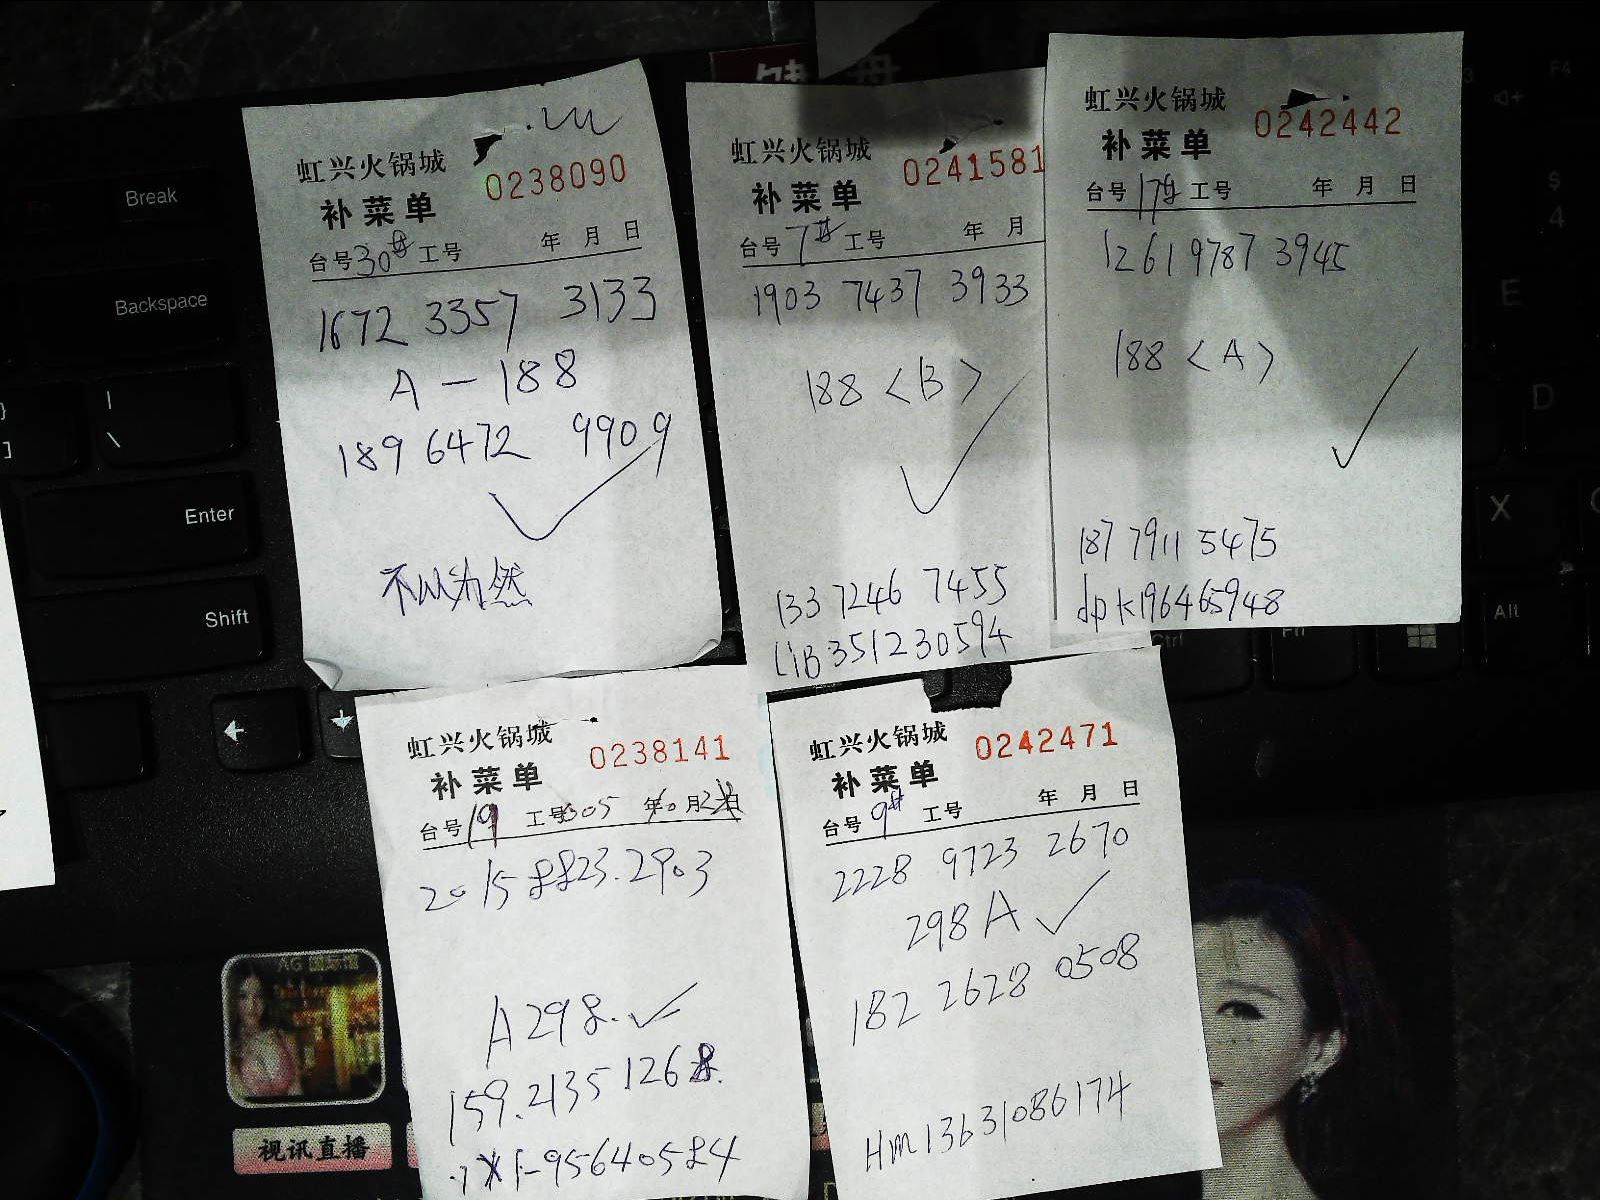 虹兴火锅城 0238090
补菜单
台号30# 工号 年 月 日
1672 3357 3133
A — 188
189 6472 9909
不以为然
虹兴火锅城 0241581
补菜单
台号7# 工号 年 月
1903 7437 3933
188 <B>
133 7246 7455
LiB351230594
虹兴火锅城 0242442
补菜单
台号17# 工号 年 月 日
1261 9787 3945
188 <A>
187 7911 5475
dpk196465948
虹兴火锅城 0238141
补菜单
台号19 工号305 年10月 日
2015 8823.2903
A298.
159.2135 1268.
95640584
虹兴火锅城 0242471
补菜单
台号9# 工号 年 月 日
2228 9723 2670
298A
182 2628 0508
Hm13631086174
Break
Backspace
|
\
}
]
Enter
Shift
F4
$
4
E
D
X
Alt
Ctrl
Fn
AG 国际馆
视讯直播